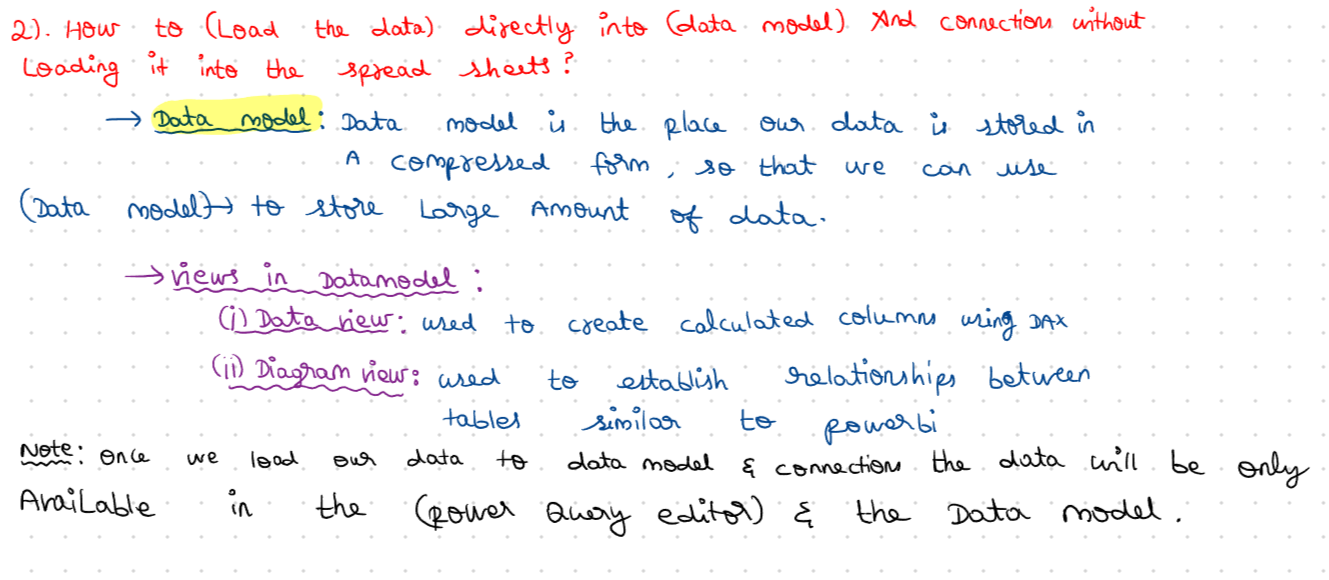 2). How to (Load the data) directly into (data model) And connection without
Loading it into the spread sheets?
→ Data model: Data model is the place our data is stored in
A compressed form, so that we can use
(Data model)→ to store Large Amount of data.
→ views in Datamodel:
(i) Data view: used to create calculated columns using DAX
(ii) Diagram view: used to establish relationships between
tables similar to powerbi
Note: once we load our data to data model & connection the data will be only
AvaiLable in the (power Query editor) & the Data model.